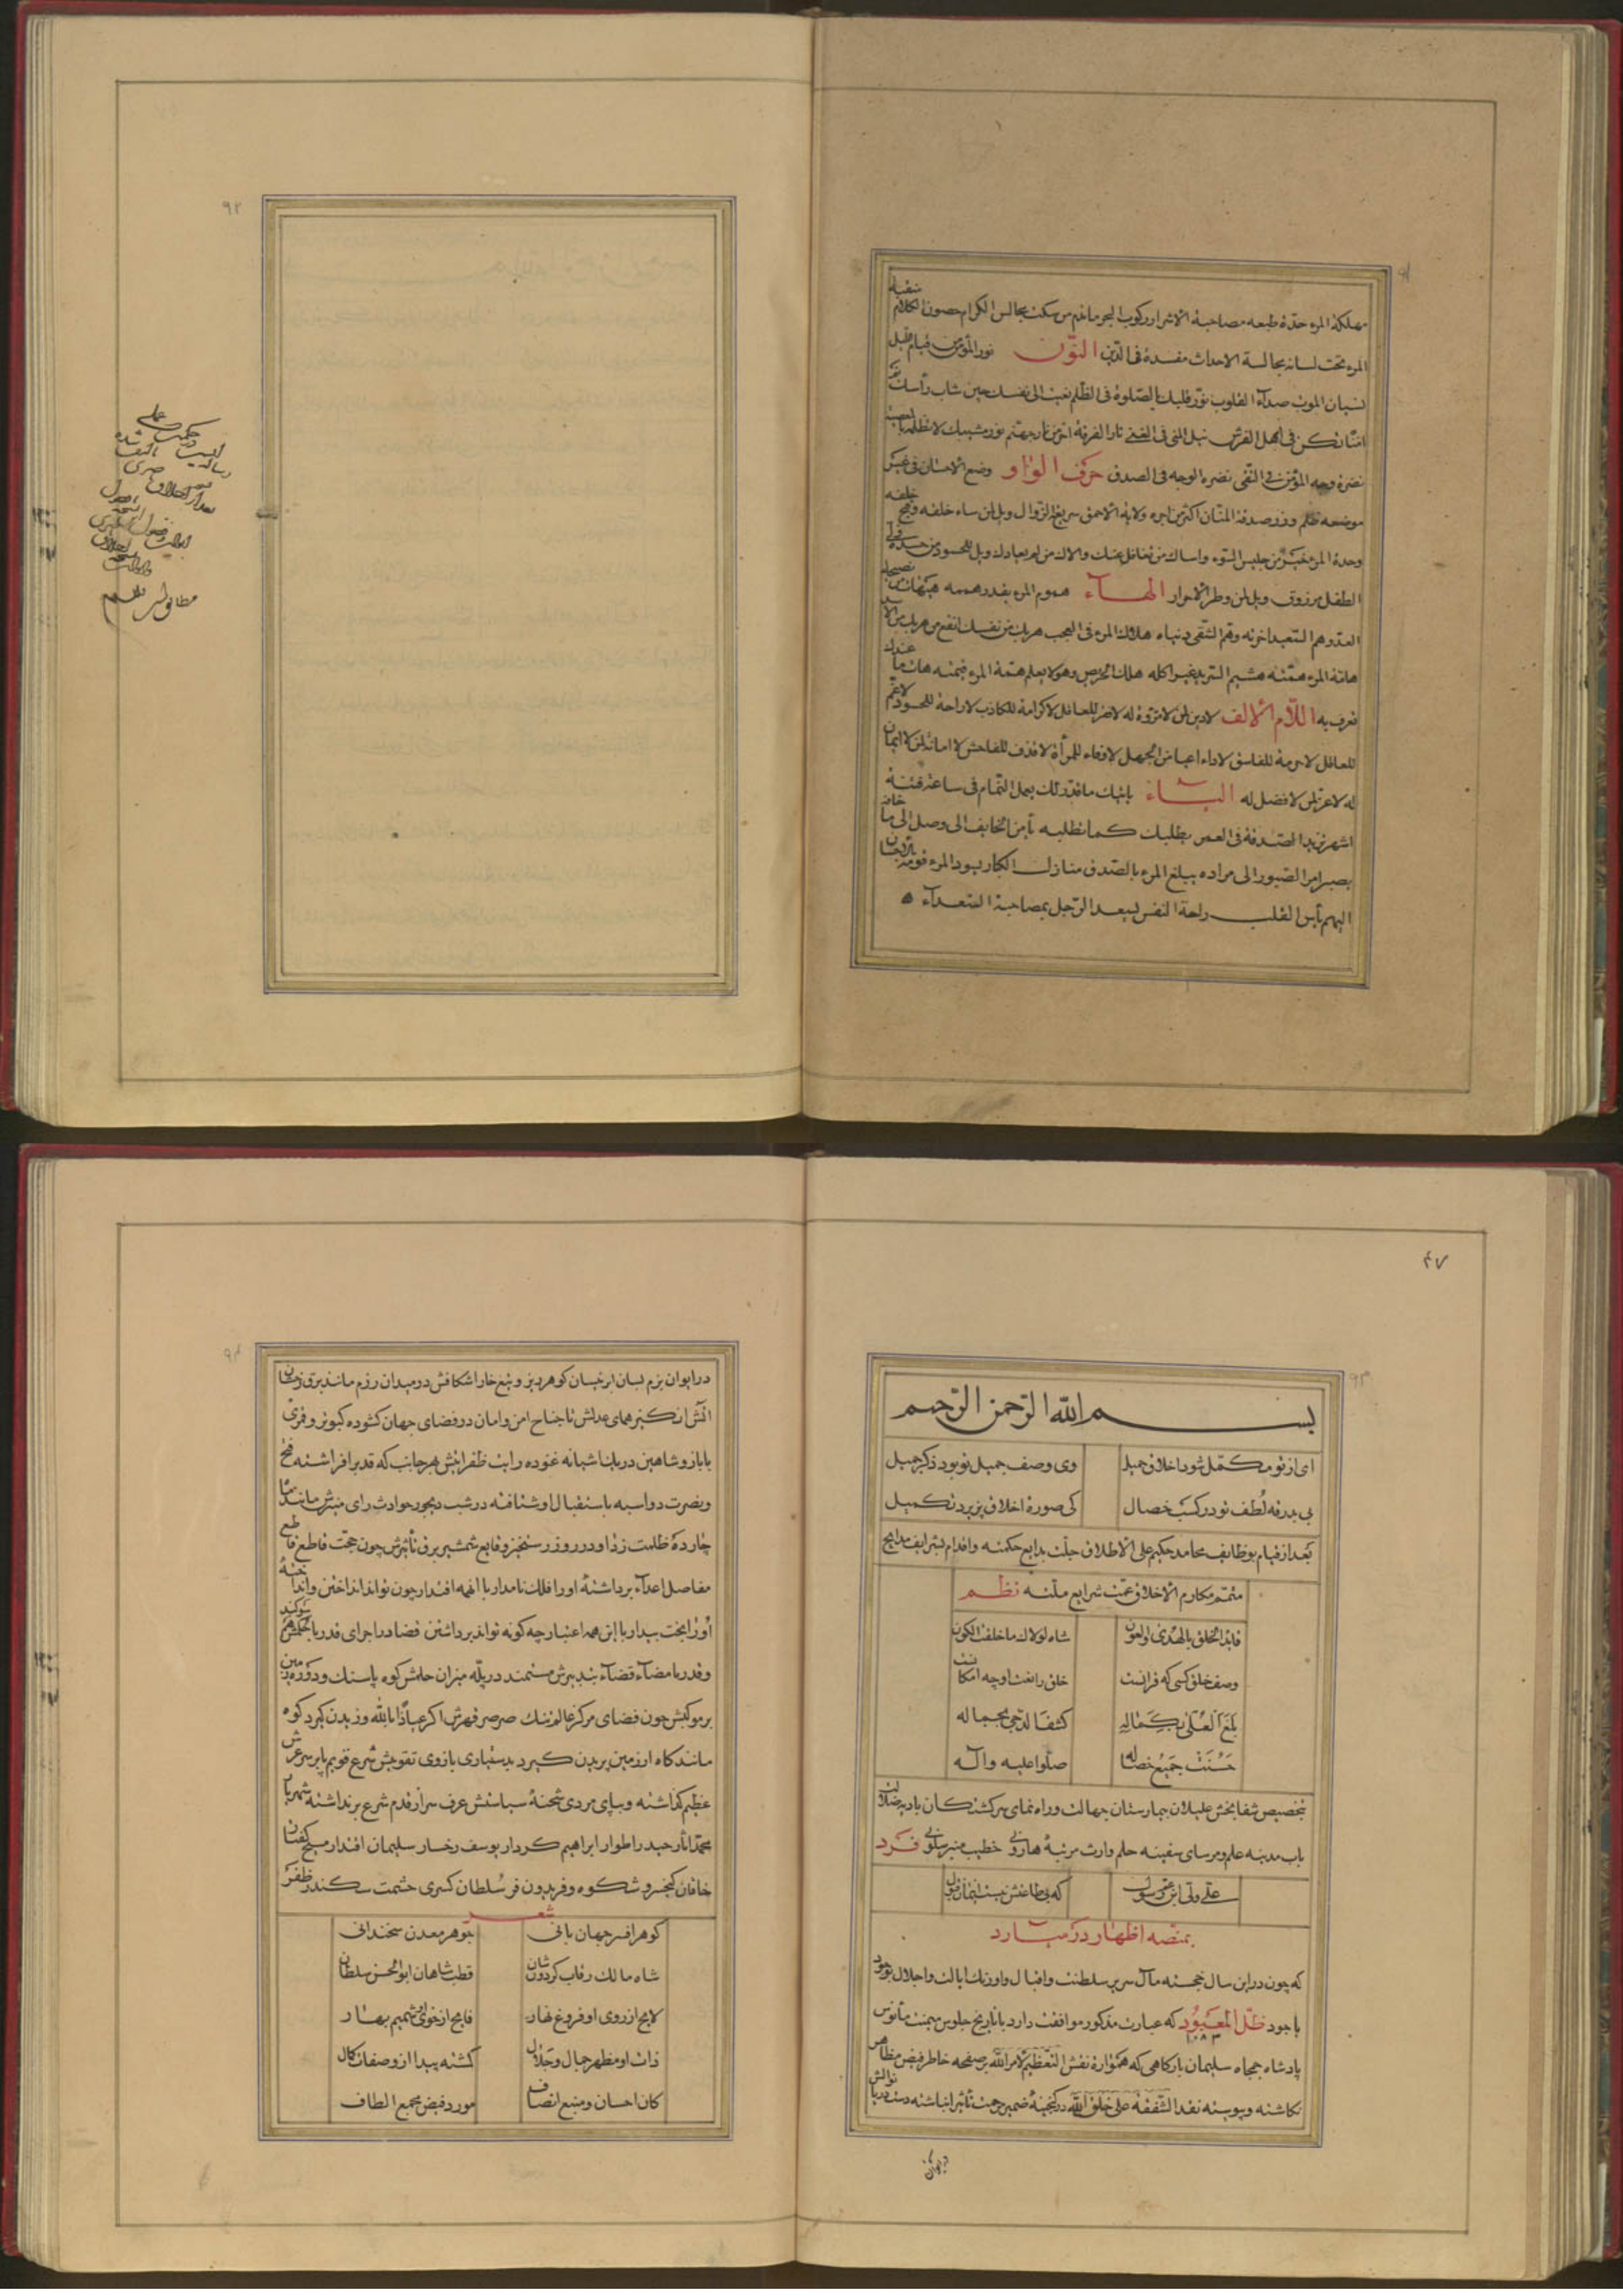 ٩١
مهلكة المرء حدة طبعه مصاحبة الاشرار ركوب البحر ما ندم من سكت مجالس الكرام حصون الكلام
المرء تحت لسانه مجالسة الاحداث مفسدة فى الدّين النّون نور المؤمن قيام الليل
نسيان الموت صدأ القلوب نوّر قلبك بالصّلوة فى الظّلم نعيت الى نفسك حين شاب رأسك
امنا تكن فى اهل الفرش نيل المنى فى الغنى نار الفرقة احرّ من نار جهنّم نور مشيبك لا تظلمه بالمعصية
نضرة وجه المؤمن فى التّقى نضرة الوجه فى الصدق حرف الواو وضع الاحسان فى غير
موضعه ظلم وزر صدقة المنّان اكثر من اجره ولاية الاحمق سريع الزّوال ويل لمن ساء خلقه وقبح خلقه
وحدة المرء خير من جليس السّوء واساك من تغافل عنك والاك من لم يعادك ويل للحسود من حسده
الطفل مرزوق ويل لمن وطر الاحرار الهآء هموم المرء بقدر هممه هيهات من نصيحة
العدو هم السّعيد اخرته وهم الشّقى دنياه هلاك المرء فى العجب هربك من نفسك انفع من هربك من الاسد
هامة المرء همّته هشيم الثريد غير اكله هلك الحريص وهو لا يعلم همّة المرء قيمته هات ما عندك
تعرف به اللّام الالف لا دين لمن لا مروّة له لا فقر للعاقل لا كرامة للكاذب لا راحة للحسود لا غم
للعاقل لا حرمة للفاسق لا داء اعيا من الجهل لا وفاء للمرأة لا قذف للفاحش لا امانة لمن لا ايمان
له لا عز لمن لا فضل له اليــاء ياتيك ما قدّر لك يعمل النّمام فى ساعة فتنة
اشهر يزيد الصّدقة فى العمر يطلبك كما تطلبه يأمن الخايف الى وصل الى ما خافه
يصير امر الصّبور الى مراده يبلغ المرء بالصّدق منازل الكبار يسود المرء قومه بالاحسان
اليهم يأس القلب راحة النفس يسعد الرّجل بمصاحبة السّعدآء
٩٢
٤٧
٩٣
بســم الله الرّحمن الرّحيم
اى از تو مكمّل شود اخلاق جميل وى وصف جميل تو بود ذكر جميل
بى بدرقه لُطف تو در كسب خصال كى صورة اخلاق پزيرد تكميل
بَعد از قيام بوظايف محامد حكيم على الاطلاق جلّت بدايع حكمته واقدام بشرايف مدايح
متمّم مكارم الاخلاق عمّت شرايع ملّته نظم
قايد الخلق بالهدى والعون شاه لولاك ما خلقت الكون
وصف خلق كسى كه قرانست خلق را نعت او چه امكانست
بَلَغَ العُلىٰ بِكَمالِهِ كشف الدّجى بجماله
حَسُنَتْ جَمِيعُ خصاله صلّوا عليه وآله
بتخصيص شفا بخش عليلان بيمارستان جهالت وراه نماى سركشتكان باديه ضلالت
باب مدينه علم ومرساى سفينه حلم وارث مرتبهٔ هارونى خطيب منبر سلونى فَرد
على ولى ابن عم رسول كه بى طاعتش نيست ايمان قبول
بمنصه اظهار در مى آرد
كه چون در اين سال خجسته مآل سرير سلطنت واقبال واورنك ايالت واجلال بوجود
با جود ظلّ المَعْبُود كه عبارت مذكور موافقت دارد با تاريخ جلوس ميمنت مأنوس
١٠٨٣
پادشاه جمجاه سليمان باركاهى كه همواره نقش التّعظيم لامر الله بر صفحه خاطر فيض مظاهر
نكاشته وپيوسته نقد الشّفقة على خلق الله در كنجينهٔ ضمير مرحمت تأثير انباشته دست دريا نوالش
در ايوان
٩٤
در ايوان بزم بسان ابر نيسان كوهر ريز وتيغ خارا شكافش در ميدان رزم مانند برق زمان
آتش انكيز هماى عدلش تا جناح امن وامان در فضاى جهان كشوده كبوتر وقمرى
با باز وشاهين در يك آشيانه غنوده رايت ظفر ايتش بهر جانب كه قد برافراشته فتح
ونصرت دو اسبه باستقبال او شتافته در شب ديجور حوادث راى منيرش مانند ماه
چارده ظلمت زدا ودر روز رستخيز وقايع شمشير برق تأثيرش چون حجّت قاطع قاطع
مفاصل اعدآء برداشتهٔ او را فلك نامدار با انهمه اقتدار چون تواند انداختن وانداخته
او را بخت بيدار با اين همه اعتبار چه كونه تواند برداشتن قضا در اجراى قدر با حكمش هم سوكند
وقدر با مضآء قضآء بتدبيرش مستمند در پلّه ميزان حلمش كوه پاسنك ودر دور زمين
بر موكبش چون فضاى مركز عالم تنك صرصر قهرش اكر عياذاً بالله وزيدن كيرد كوه
مانند كاه از زمين پريدن كيرد بدستيارى بازوى تقويتش شرع قويم پا بر سر عرش
عظيم كذاشته وبپاى مردى شحنهٔ سياستش عرف سر از قدم شرع برنداشته شهريار
محمّد آثار حيدر اطوار ابراهيم كردار يوسف رخسار سليمان اقتدار مسيح كفتار
خاقان كيخسرو شكوه وفريدون فر سُلطان كسرى حشمت سكندر ظفر
شعـــر
كوهر افسر جهان بانى جوهر معدن سخندانى
شاه مالك رقاب كردون شان قطبشاهان ابو الحسن سلطان
لايح از روى او فروغ نهار فايح از خوى او شميم بهار
ذات او مظهر جمال وجلال كشته پيدا از و صفات كمال
كان احسان ومنبع انصاف مورد فيض مجمع الطاف